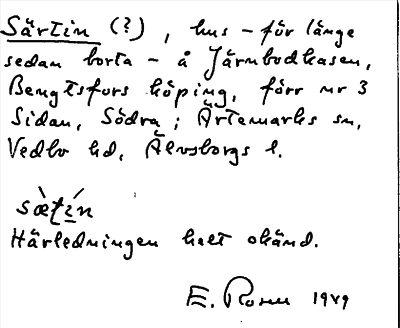 Särtin (?), hus – för länge
sedan borta – å Järnbodhasen,
Bengtsfors köping, förr nr 3
Sidan, Södra; Ärtemarks sn,
Vedbo hd, Älvsborgs l.
sæ̀tín
Härledningen helt okänd.
E. Rosen 1949